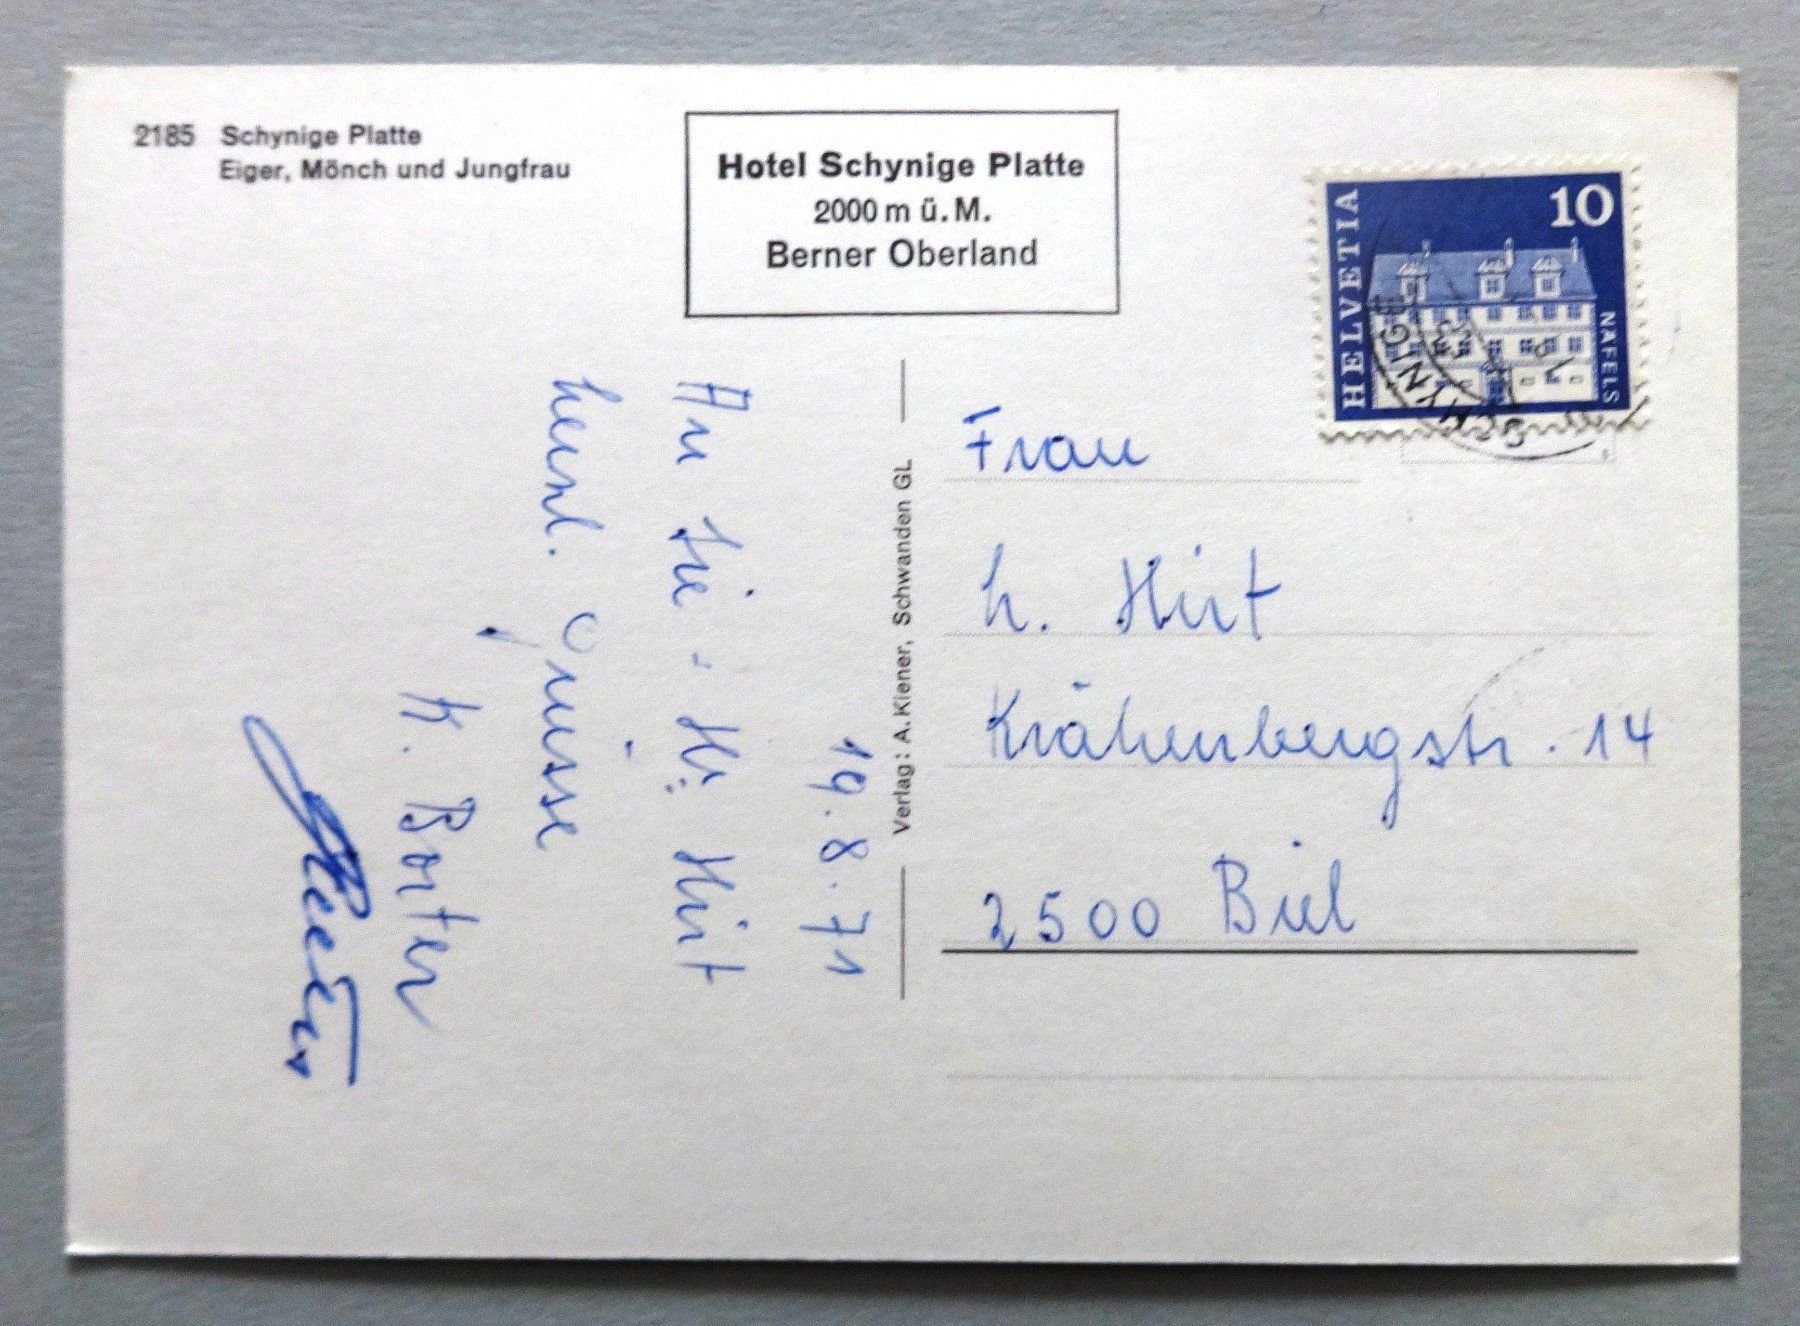 2185 Schynige Platte
Eiger, Mönch und Jungfrau
Hotel Schynige Platte
2000 m ü. M.
Berner Oberland
HELVETIA
10
NÄFELS
SCHYNIGE
19.8.71
An Sie - Hr. Hirt
herzl. Grüsse
K. Borter
Verlag: A. Kiener, Schwanden GL
Frau
h. Hirt
Krähenbergstr. 14
2500 Biel